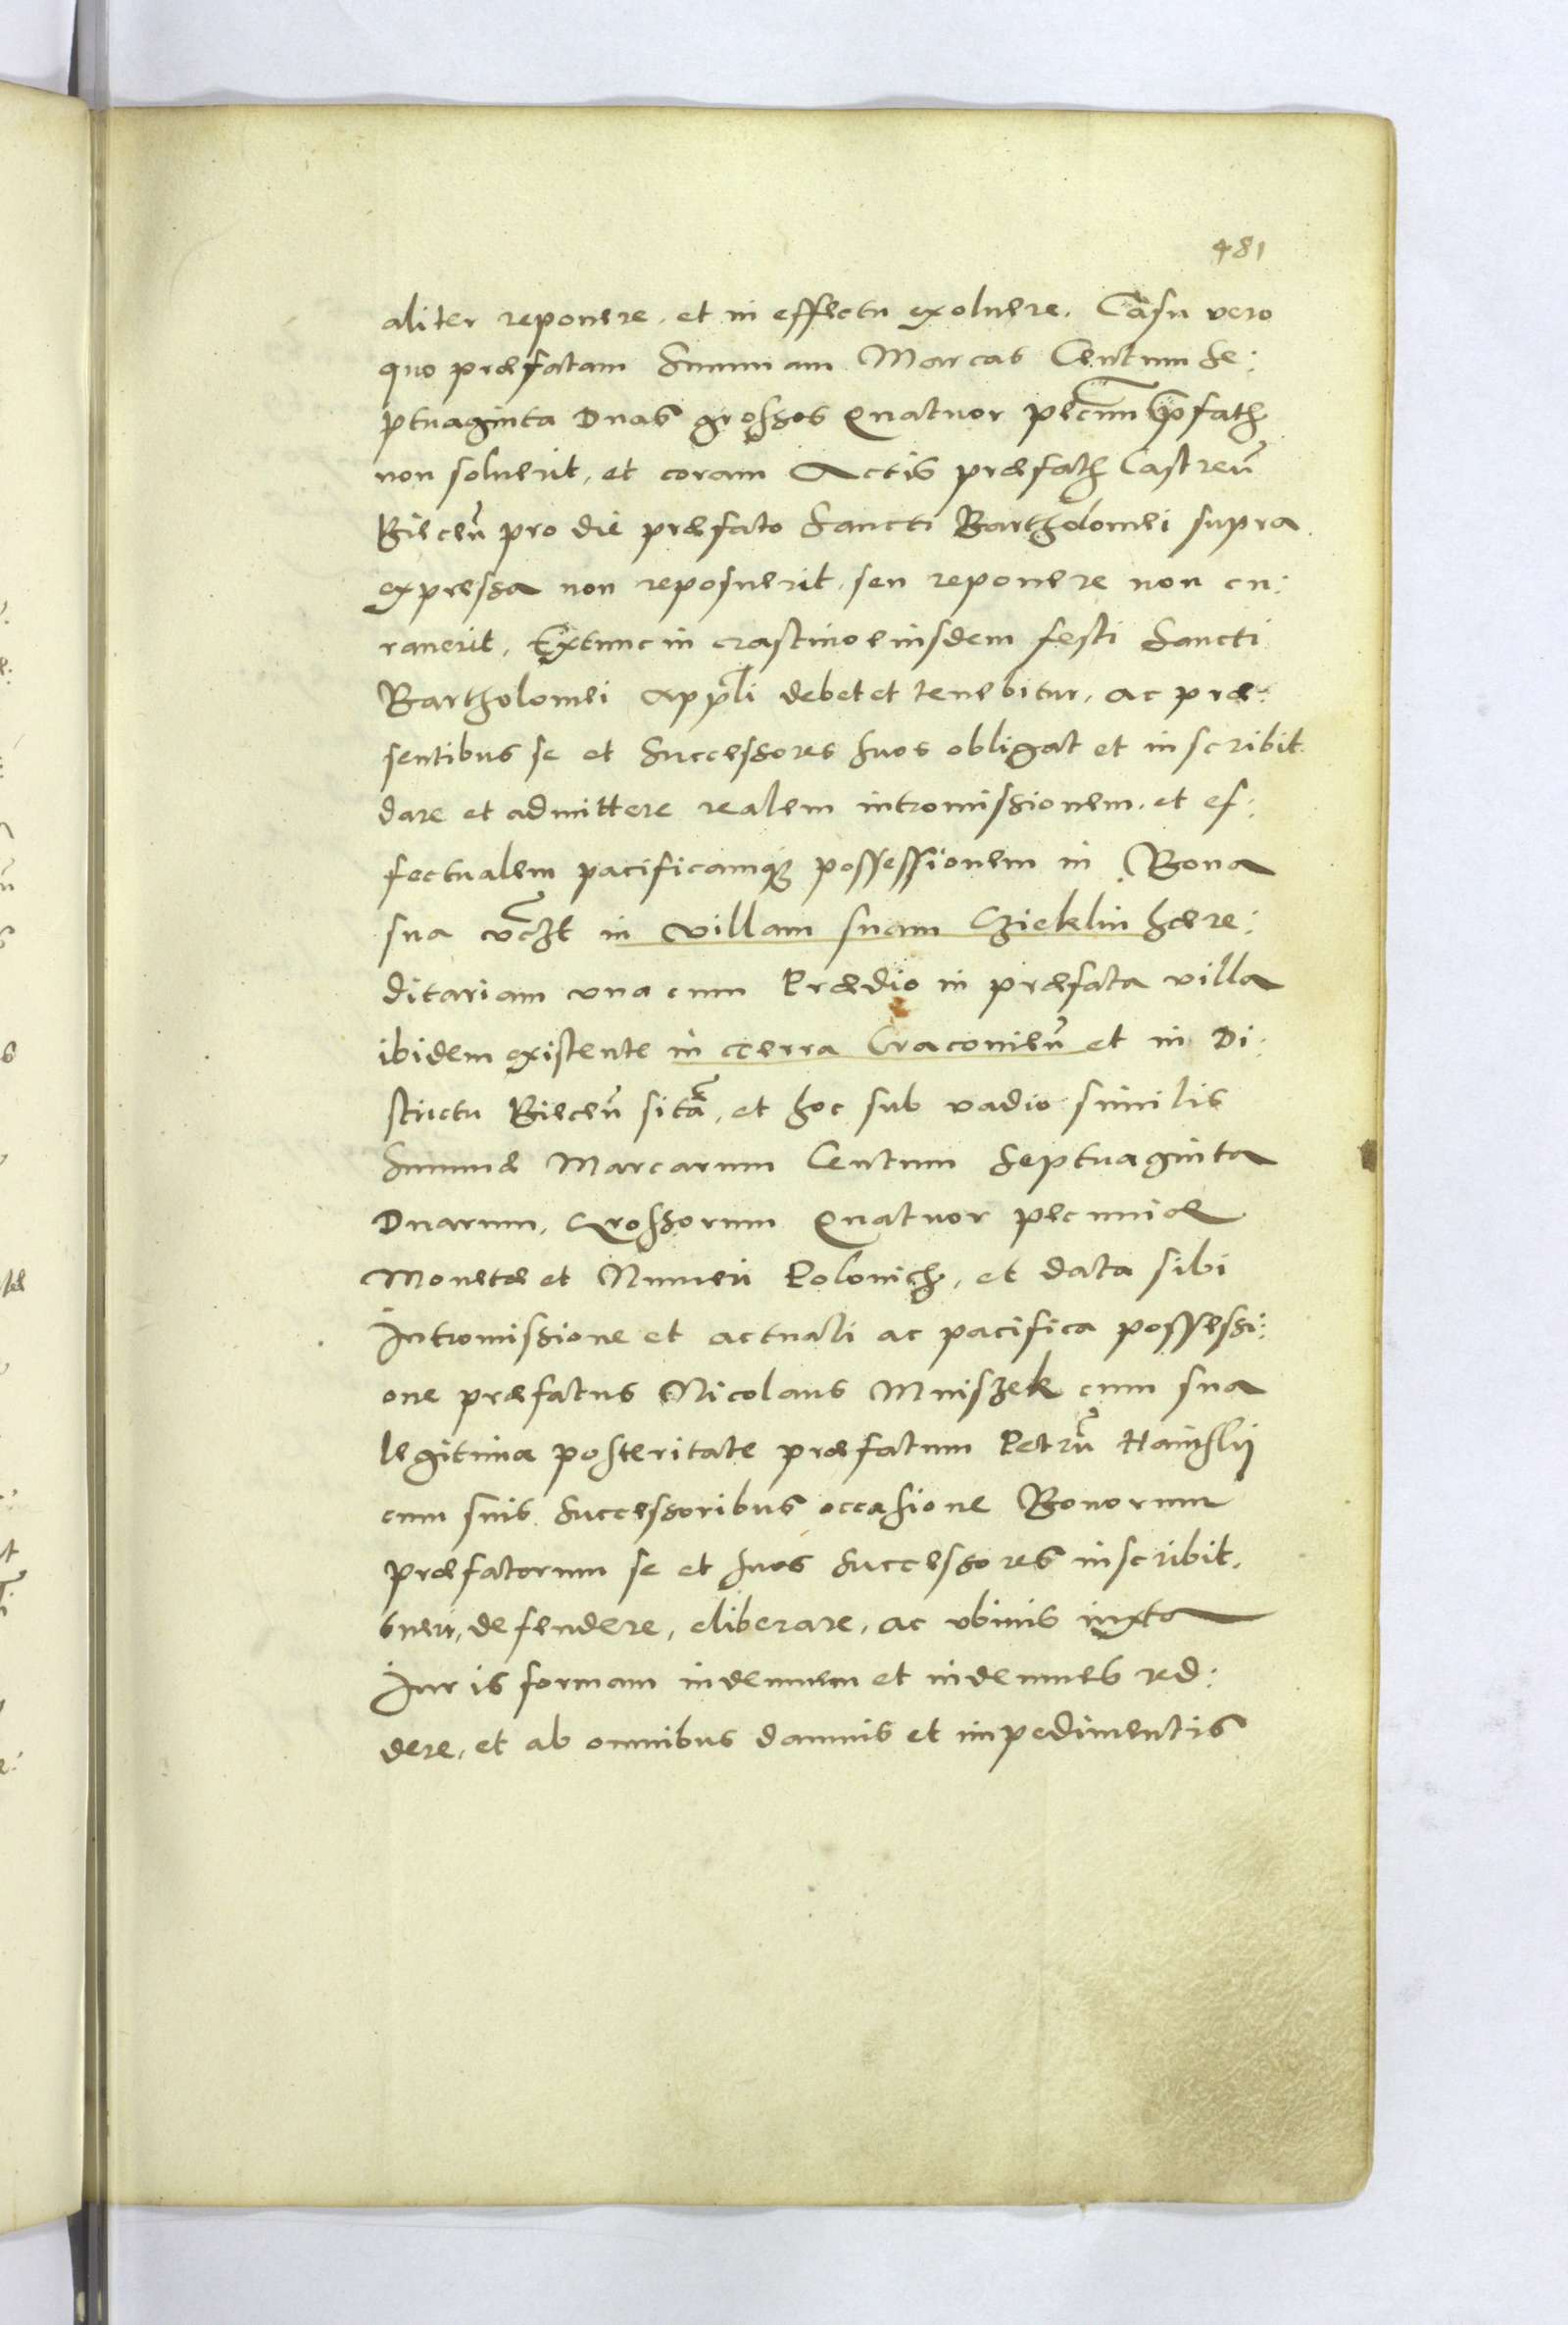 481
aliter reponere, et in effectu exoluere. Casu vero
quo præfatam Summam Marcas Centum Se:
ptuaginta Duas grossos Quatuor pecun præfatæ
non soluerit, et coram Actis præfatis Castren̄
Biecen̄ pro die præfato Sancti Bartholomei supra
expressa non reposuerit, seu reponere non cu:
rauerit, Extunc in crastino eiusdem festi Sancti
Bartholomei App̄li debet et tenebitur, ac præ:
sentibus se et Successores suos obligat et inscribit
dare et admittere realem intromissionem, et ef:
fectualem pacificamq̃ possessionem in Bona
sua vc̄zt in villam suam Czieklin hære:
ditariam vna cum Prædio in præfata villa
ibidem existente in terra Cracouien̄ et in Di:
strictu Biecen̄ sitā, et hoc sub vadio similis
Summæ Marcarum Centum Septuaginta
Duarum, Grossorum Quatuor pecuniæ
Monetæ et Numeri Polonich, et data sibi
Intromissione et actuali ac pacifica possessi:
one præfatus Nicolaus Mniszek cum sua
legitima posteritate præfatum Petrū
cum suis Successoribus occasione Bonorum
præfatorum se et suos Successores inscribit,
tueri, defendere, eliberare, ac vbiuis iuxta
Iuris formam indemnem et indemnes red:
dere, et ab omnibus damnis et impedimentis